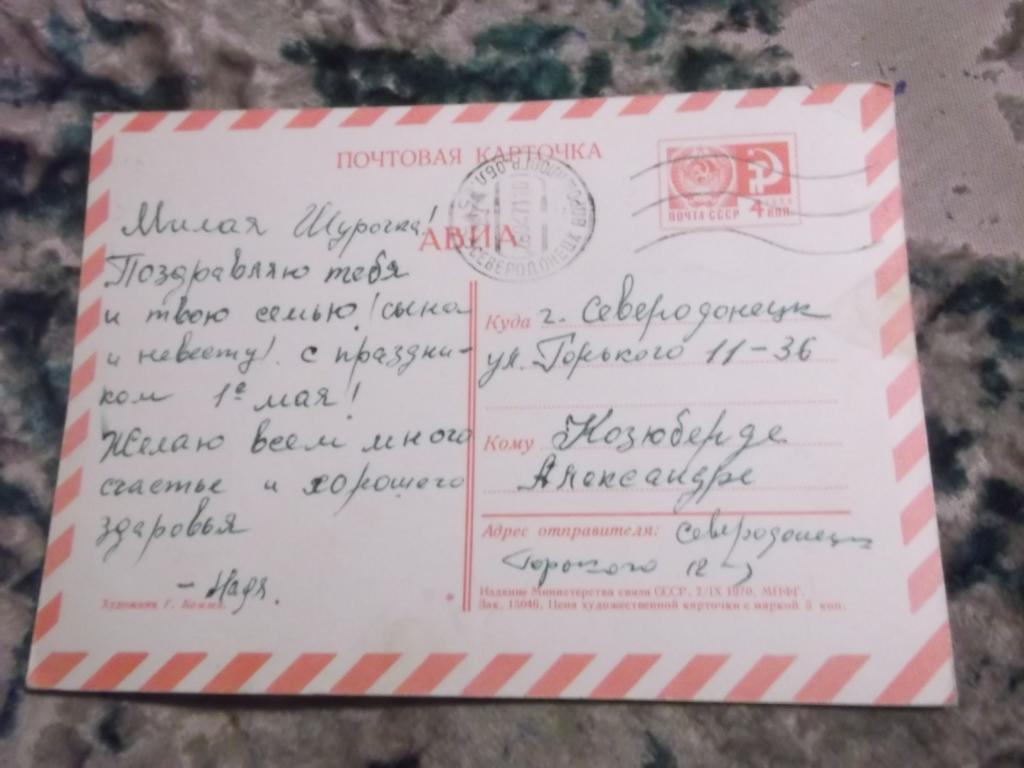 ПОЧТОВАЯ КАРТОЧКА
АВИА
СЕВЕРОДОНЕЦК
ПОЧТА СССР
4 КОП
Милая Шурочка!
Поздравляю тебя
и твою семью! /сына
и невестку/. с праздни-
ком 1е мая!
Желаю всем много
счастье и хорошего
здоровья
- Надя.
Художник Г.
Куда г. Северодонецк
ул. Горького 11-36
Кому Козюберде
Александре
Адрес отправителя: Северодонецк
Горького 12
Издание Министерства связи СССР. 2/IX 1970. МПФГ.
Зак. 15046. Цена художественной карточки с маркой 5 коп.